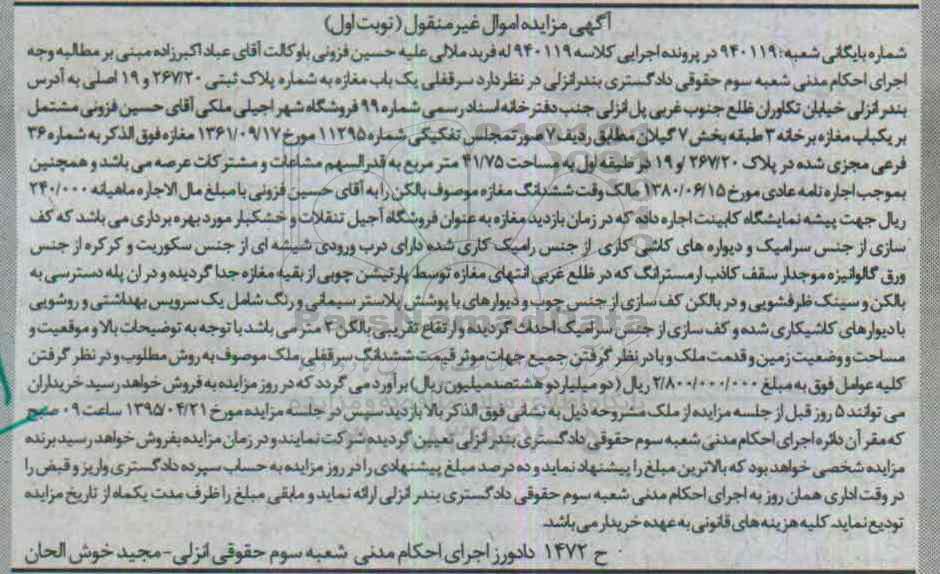 آگهی مزایده اموال غیر منقول (نوبت اول)
شماره بایگانی شعبه: ۹۴۰۱۱۹ در پرونده اجرایی کلاسه ۹۴۰۱۱۹ له فرید ملالی علیه حسین فزونی باوکالت آقای عباد اکبرزاده مبنی بر مطالبه وجه
اجرای احکام مدنی شعبه سوم حقوقی دادگستری بندرانزلی در نظر دارد سرقفلی یک باب مغازه به شماره پلاک ثبتی ۲۶۷/۲۰ و ۱۹ اصلی به آدرس
بندر انزلی خیابان تکاوران ظلع جنوب غربی پل انزلی جنب دفتر خانه اسناد رسمی شماره ۹۹ فروشگاه شهر اجیلی ملکی آقای حسین فزونی مشتمل
بر یکباب مغازه بر خانه ۳ طبقه بخش ۷ گیلان مطابق ردیف ۷ صورتمجلس تفکیکی شماره ۱۱۲۹۵ مورخ ۱۳۶۱/۰۹/۱۷ مغازه فوق الذکر به شماره ۳۶
فرعی مجزی شده در پلاک ۲۶۷/۲۰ و ۱۹ در طبقه اول به مساحت ۴۱/۷۵ متر مربع به قدرالسهم مشاعات و مشترکات عرصه می باشد و همچنین
بموجب اجاره نامه عادی مورخ ۱۳۸۰/۰۶/۱۵ مالک وقت ششدانگ مغازه موصوف بالکن را به آقای حسین فزونی با مبلغ مال الاجاره ماهیانه ۲۴۰/۰۰۰
ریال جهت پیشه نمایشگاه کابینت اجاره داده که در زمان بازدید مغازه به عنوان فروشگاه آجیل تنقلات و خشکبار مورد بهره برداری می باشد که کف
سازی از جنس سرامیک و دیواره های کاشی کاری از جنس رامیک کاری شده دارای درب ورودی شیشه ای از جنس سکوریت و کرکره از جنس
ورق گالوانیزه موجدار سقف کاذب ارمسترانگ که در ظلع غربی انتهای مغازه توسط پارتیشن چوبی از بقیه مغازه جدا گردیده و در ان پله دسترسی به
بالکن و سینک ظرفشویی و در بالکن کف سازی از جنس چوب و دیوارهای با پوشش پلاستر سیمانی و رنگ شامل یک سرویس بهداشتی و روشویی
با دیوارهای کاشیکاری شده و کف سازی از جنس سرامیک احداث گردیده و ارتفاع تقریبی بالکن ۳ متر می باشد با توجه به توضیحات بالا و موقعیت و
مساحت و وضعیت زمین و قدمت ملک و با در نظر گرفتن جمیع جهات موثر قیمت ششدانگ سرقفلی ملک موصوف به روش مطلوب و در نظر گرفتن
کلیه عوامل فوق به مبلغ ۲/۸۰۰/۰۰۰/۰۰۰ ریال (دو میلیارد و هشتصد میلیون ریال) برآورد می گردد که در روز مزایده به فروش خواهد رسید خریداران
می توانند ۵ روز قبل از جلسه مزایده از ملک مشروحه ذیل به نشانی فوق الذکر بالا بازدید سپس در جلسه مزایده مورخ ۱۳۹۵/۰۴/۲۱ ساعت ۰۹ صبح
که مقر آن دائره اجرای احکام مدنی شعبه سوم حقوقی دادگستری بندر انزلی تعیین گردیده شرکت نمایند و در زمان مزایده بفروش خواهد رسید برنده
مزایده شخصی خواهد بود که بالاترین مبلغ را پیشنهاد نماید و ده درصد مبلغ پیشنهادی را در روز مزایده به حساب سپرده دادگستری واریز و قبض را
در وقت اداری همان روز به اجرای احکام مدنی شعبه سوم حقوقی دادگستری بندر انزلی ارائه نماید و مابقی مبلغ را ظرف مدت یکماه از تاریخ مزایده
تودیع نماید. کلیه هزینه های قانونی به عهده خریدار می باشد.
ح ۱۴۷۲ دادورز اجرای احکام مدنی شعبه سوم حقوقی انزلی - مجید خوش الحان